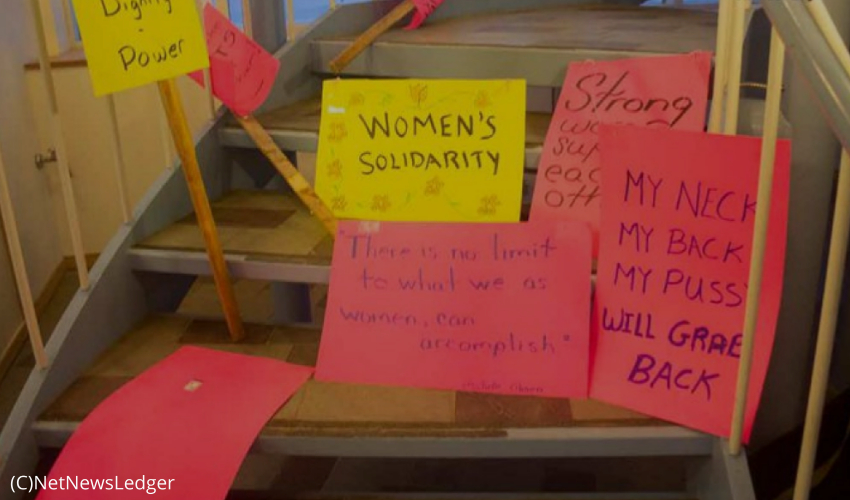 Dignity
-
Power
WOMEN'S
SOLIDARITY
Strong
"There is no limit
to what we as
women, can
accomplish"
MY NECK
MY BACK
MY PUSS
WILL GRAB
BACK
(C)NetNewsLedger